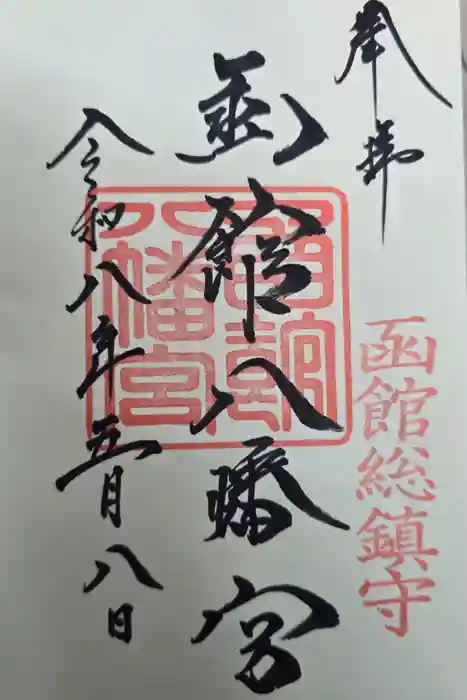 奉拝
函館総鎮守
函館八幡宮
函館
八幡宮
令和八年五月八日